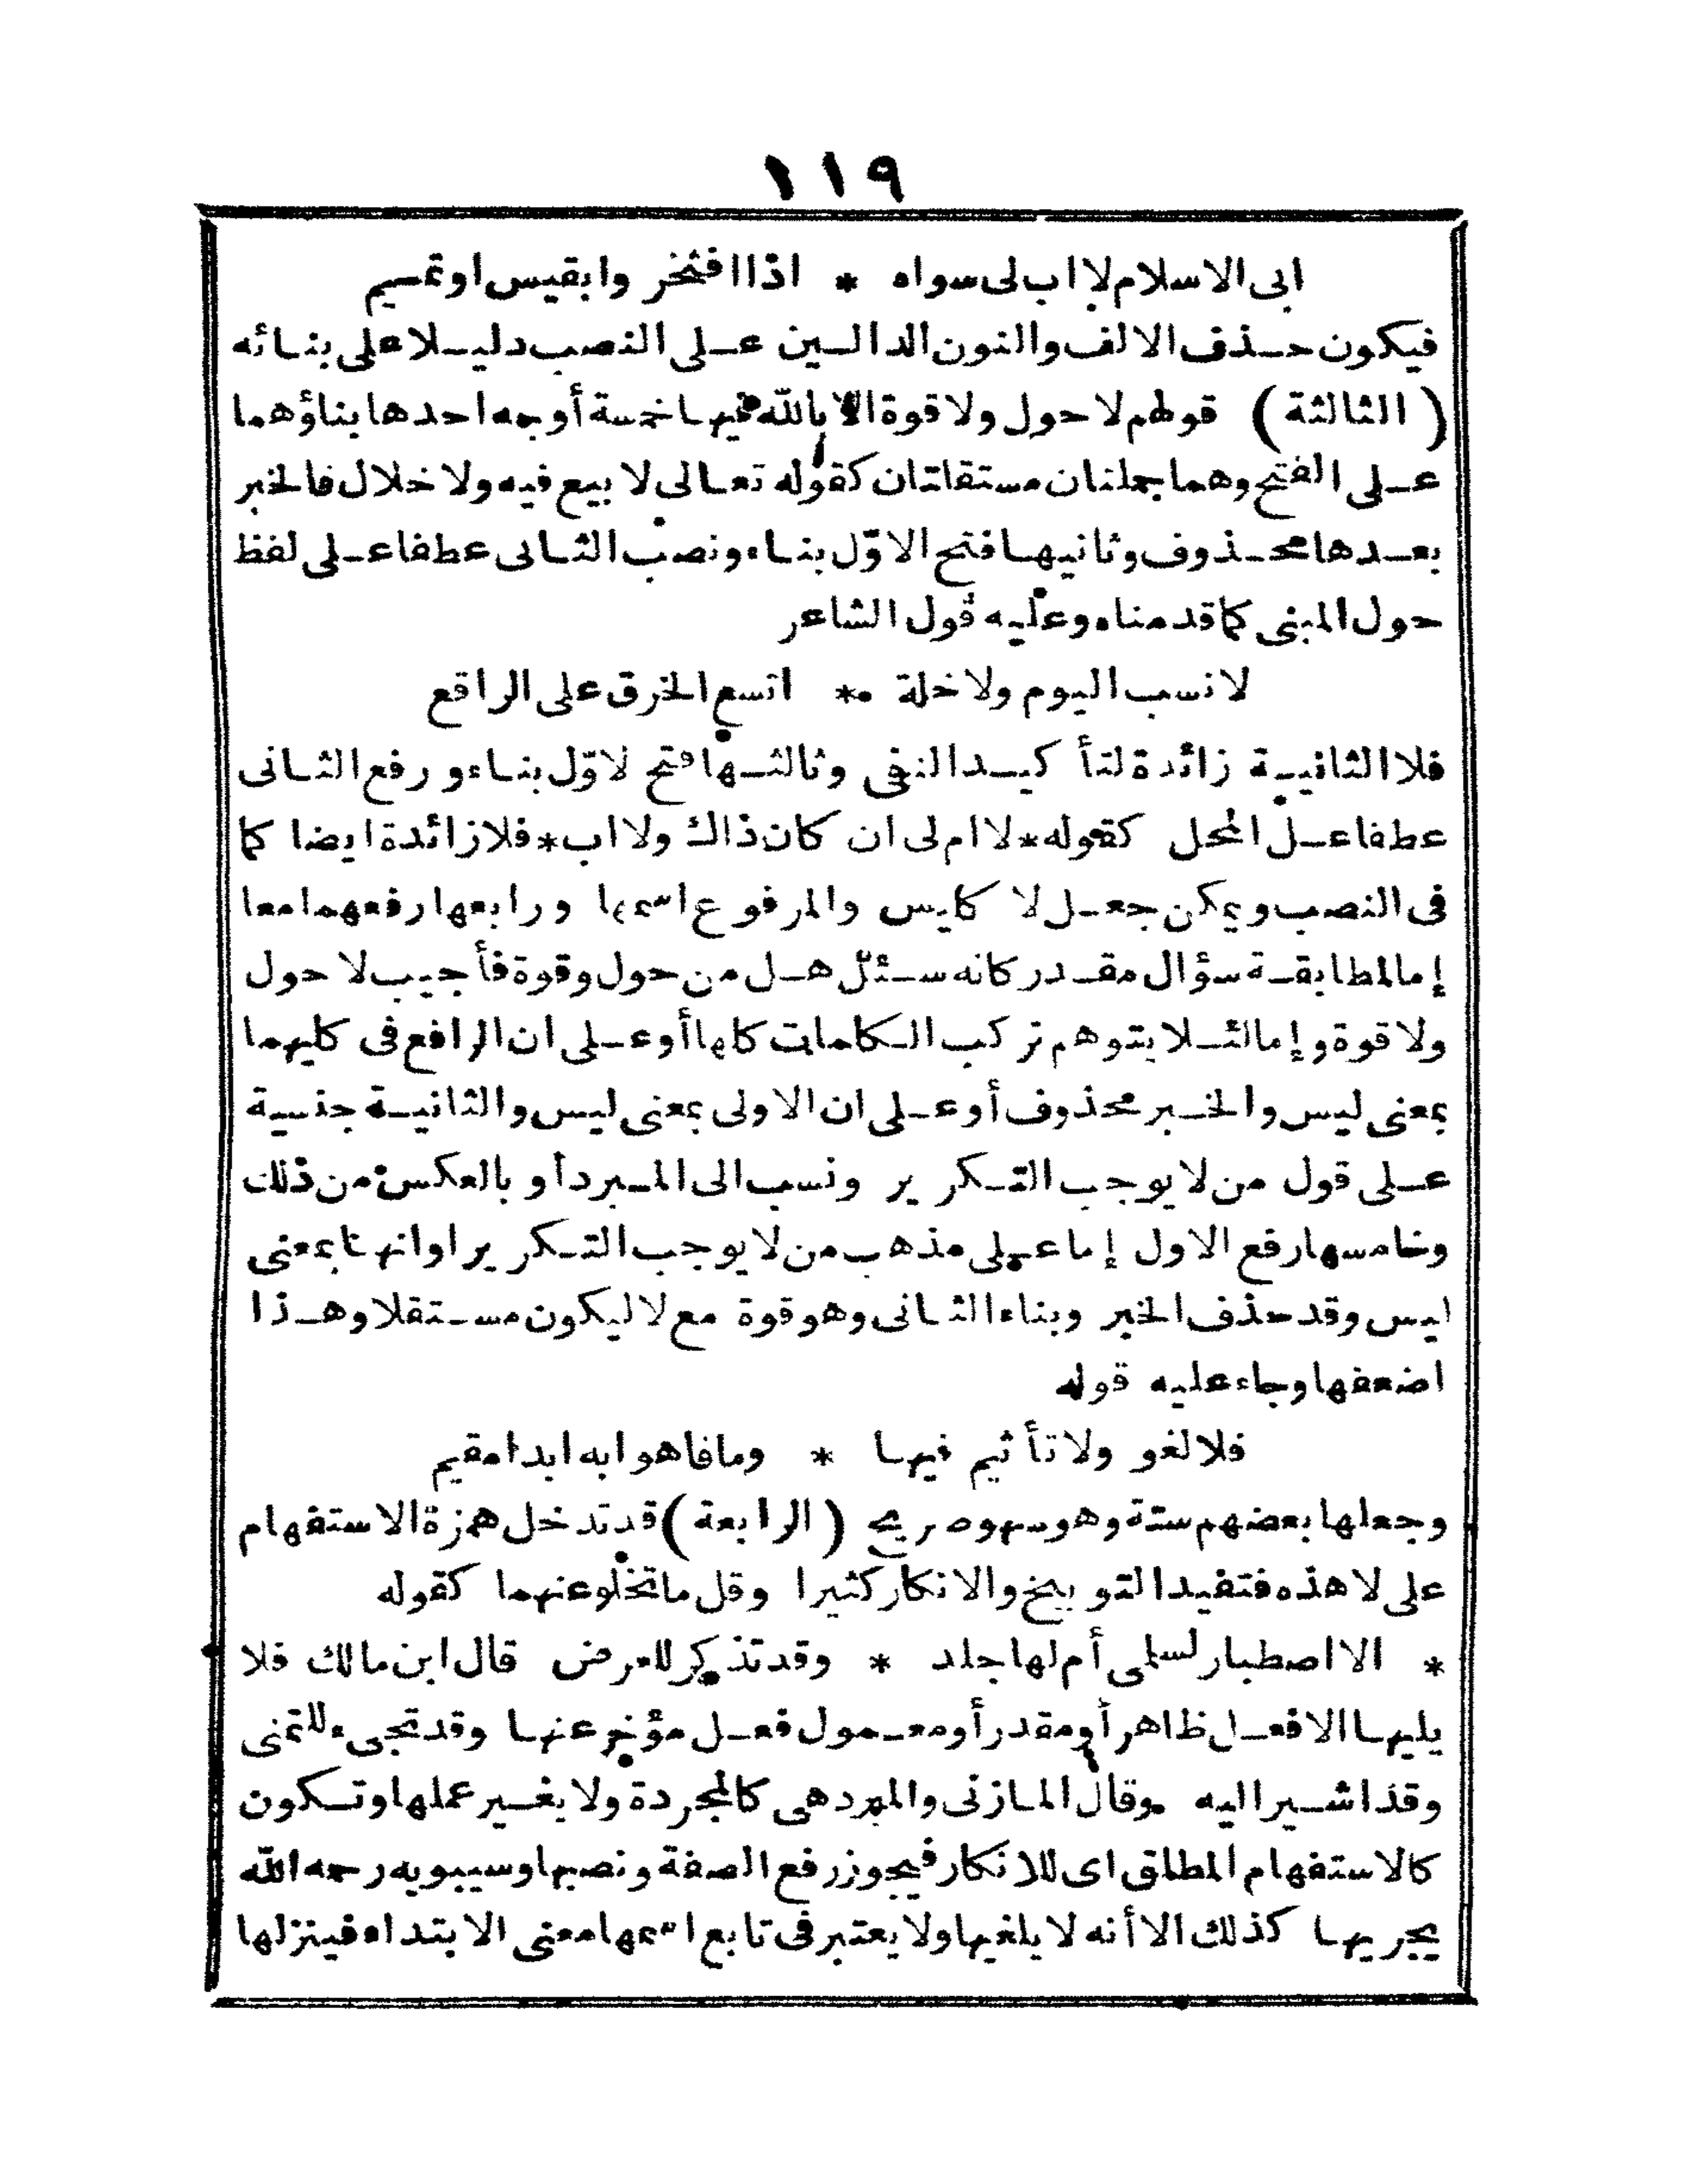 ١١٩
ابى الاسلام لا اب لى سواه * اذا افتخروا بقيس او تمسيم
فيكون حذف الالف والنون الدالين على النصب دليلا على بنائه
(الثالثة) قولهم لا حول ولا قوة الا بالله فيها خمسة أوجه احدها بناؤهما
على الفتح وهما جملتان مستقلتان كقوله تعالى لا بيع فيه ولا خلال فالخبر
بعدها محذوف وثانيها فتح الاوّل بناء ونصب الثانى عطفا على لفظ
حول المبنى كما قدمناه وعليه قول الشاعر
لا نسب اليوم ولا خلة * اتسع الخرق على الراقع
فلا الثانية زائدة لتأكيد النفى وثالثها فتح لاوّل بناء ورفع الثانى
عطفا على المحل كقوله * لا ام لى ان كان ذاك ولا اب * فلا زائدة ايضا كما
فى النصب ويمكن جعل لا كليس والمرفوع اسمها ورابعها رفعهما معا
إما لمطابقة سؤال مقدر كانه سئل هل من حول وقوة فأجيب لا حول
ولا قوة وإما لئلا يتوهم تركب الكلمات كلها أو على ان الرافع فى كليهما
بمعنى ليس والخبر محذوف أو على ان الاولى بمعنى ليس والثانية جنسية
على قول من لا يوجب التكرير ونسب الى المبرد أو بالعكس من ذلك
وخامسها رفع الاول إما على مذهب من لا يوجب التكرير او انها بمعنى
ليس وقد حذف الخبر وبناء الثانى وهو قوة مع لا ليكون مستقلا وهذا
اضعفها وجاء عليه قوله
فلا لغو ولا تأثيم فيها * وما فاهوا به ابدا مقيم
وجعلها بعضهم ستة وهو سهو صريح (الرابعة) قد تدخل همزة الاستفهام
على لا هذه فتفيد التوبيخ والانكار كثيرا وقل ما تخلو عنهما كقوله
* الا اصطبار لسلمى أم لها جلد * وقد تذكر للعرض قال ابن مالك فلا
يليها الا فعل ظاهر أو مقدر أو معمول فعل مؤخر عنها وقد تجىء للتمنى
وقد اشير اليه وقال المازنى والمبرد هى كالمجردة ولا يغير عملها وتكون
كالاستفهام المطلق اى للانكار فيجوز رفع الصفة ونصبها وسيبويه رحمه الله
يجريها كذلك الا أنه لا يلغيها ولا يعتبر فى تابع اسمها معنى الابتداء فينزلها